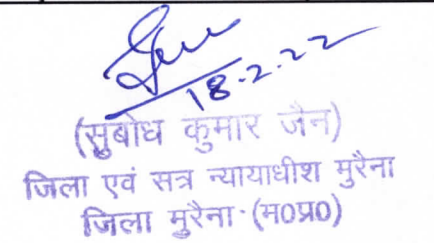 18.2.22
(सुबोध कुमार जैन)
जिला एवं सत्र न्यायाधीश मुरैना
जिला मुरैना (म0प्र0)